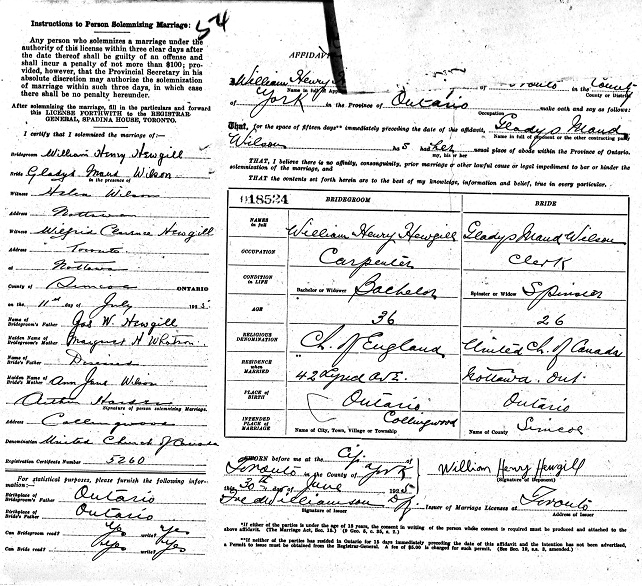 54
Instructions to Person Solemnizing Marriage:
Any person who solemnizes a marriage under
the authority of this license within three clear days after
the date thereof shall be guilty of an offense and
shall incur a penalty of not more than $100; pro-
vided, however, that the Provincial Secretary in his
absolute discretion may authorize the solemnization
of marriage within such three days, in which case
there shall be no penalty hereunder.
After solemnizing the marriage, fill in the particulars and forward
this LICENSE FORTHWITH to the REGISTRAR-
GENERAL, SPADINA HOUSE, TORONTO.
I certify that I solemnized the marriage of:—
Bridegroom William Henry Hewgill
Bride Gladys Maud Wilson
in the presence of
Witness Helen Wilson
Address Nottawa
Witness Wilfrid Clarence Hewgill
Address Toronto
at Nottawa
County of Simcoe ONTARIO
on the 11th day of July 193
Name of Bridegroom's Father Jas W. Hewgill
Maiden Name of Bridegroom's Mother Margaret H
Name of Bride's Father
Maiden Name of Bride's Mother Ann Jane Wilson
Arthur
Signature of person solemnizing Marriage.
Address Collingwood
Denomination United Church of Canada
Registration Certificate Number 5260
For statistical purposes, please furnish the following infor-
mation:—
Birthplace of Bridegroom's Father Ontario
Birthplace of Bride's Father Ontario
Can Bridegroom read? Yes write? Yes
Can Bride read? Yes write? Yes
AFFIDAV
William Henry
Name in full of
Toronto in the County
County or District
of York in the Province of Ontario
Occupation make oath and say as follows:
That, for the space of fifteen days** immediately preceding the date of this affidavit, Gladys Maud
Name in full of deponent or the other contracting party
Wilson has had her usual place of abode within the Province of Ontario.
my, his or her
THAT, I believe there is no affinity, consanguinity, prior marriage or other lawful cause or legal impediment to bar or hinder the
solemnization of the marriage, and
THAT the contents set forth herein are to the best of my knowledge, information and belief, true in every particular.
018524 BRIDEGROOM BRIDE
NAMES in full William Henry Hewgill Gladys Maud Wilson
OCCUPATION Carpenter Clerk
CONDITION in LIFE Bachelor or Widower Bachelor Spinster or Widow Spinster
AGE 36 26
RELIGIOUS DENOMINATION Ch. of England United Ch. of Canada
RESIDENCE when MARRIED 42 Ave. Nottawa. Ont.
PLACE OF BIRTH Ontario Ontario
INTENDED PLACE OF MARRIAGE Collingwood Simcoe
Name of City, Town, Village or Township Name of County
SWORN before me at the City of
Toronto in the County of York
this 30th day of June 193
William Henry Hewgill
(Signature of Deponent)
Fred Williamson Issuer of Marriage Licenses at Toronto
Signature of Issuer Address of Issuer
*If either of the parties is under the age of 18 years, the consent in writing of the person whose consent is required must be produced and attached to the
above affidavit.
**If neither of the parties has resided in Ontario for 15 days immediately preceding the date of this affidavit and the intention has not been advertised,
a Permit to issue must be obtained from the Registrar-General. A fee of $5.00 is charged for such permit.